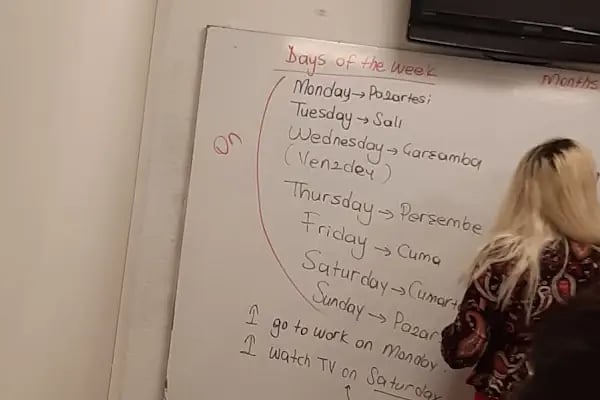 Days of the week
Months
on
Monday → Pazartesi
Tuesday → Salı
Wednesday → Çarşamba
(Venzdey)
Thursday → Perşembe
Friday → Cuma
Saturday → Cumart
Sunday → Pazar
I go to work on Monday.
I watch TV on Saturday